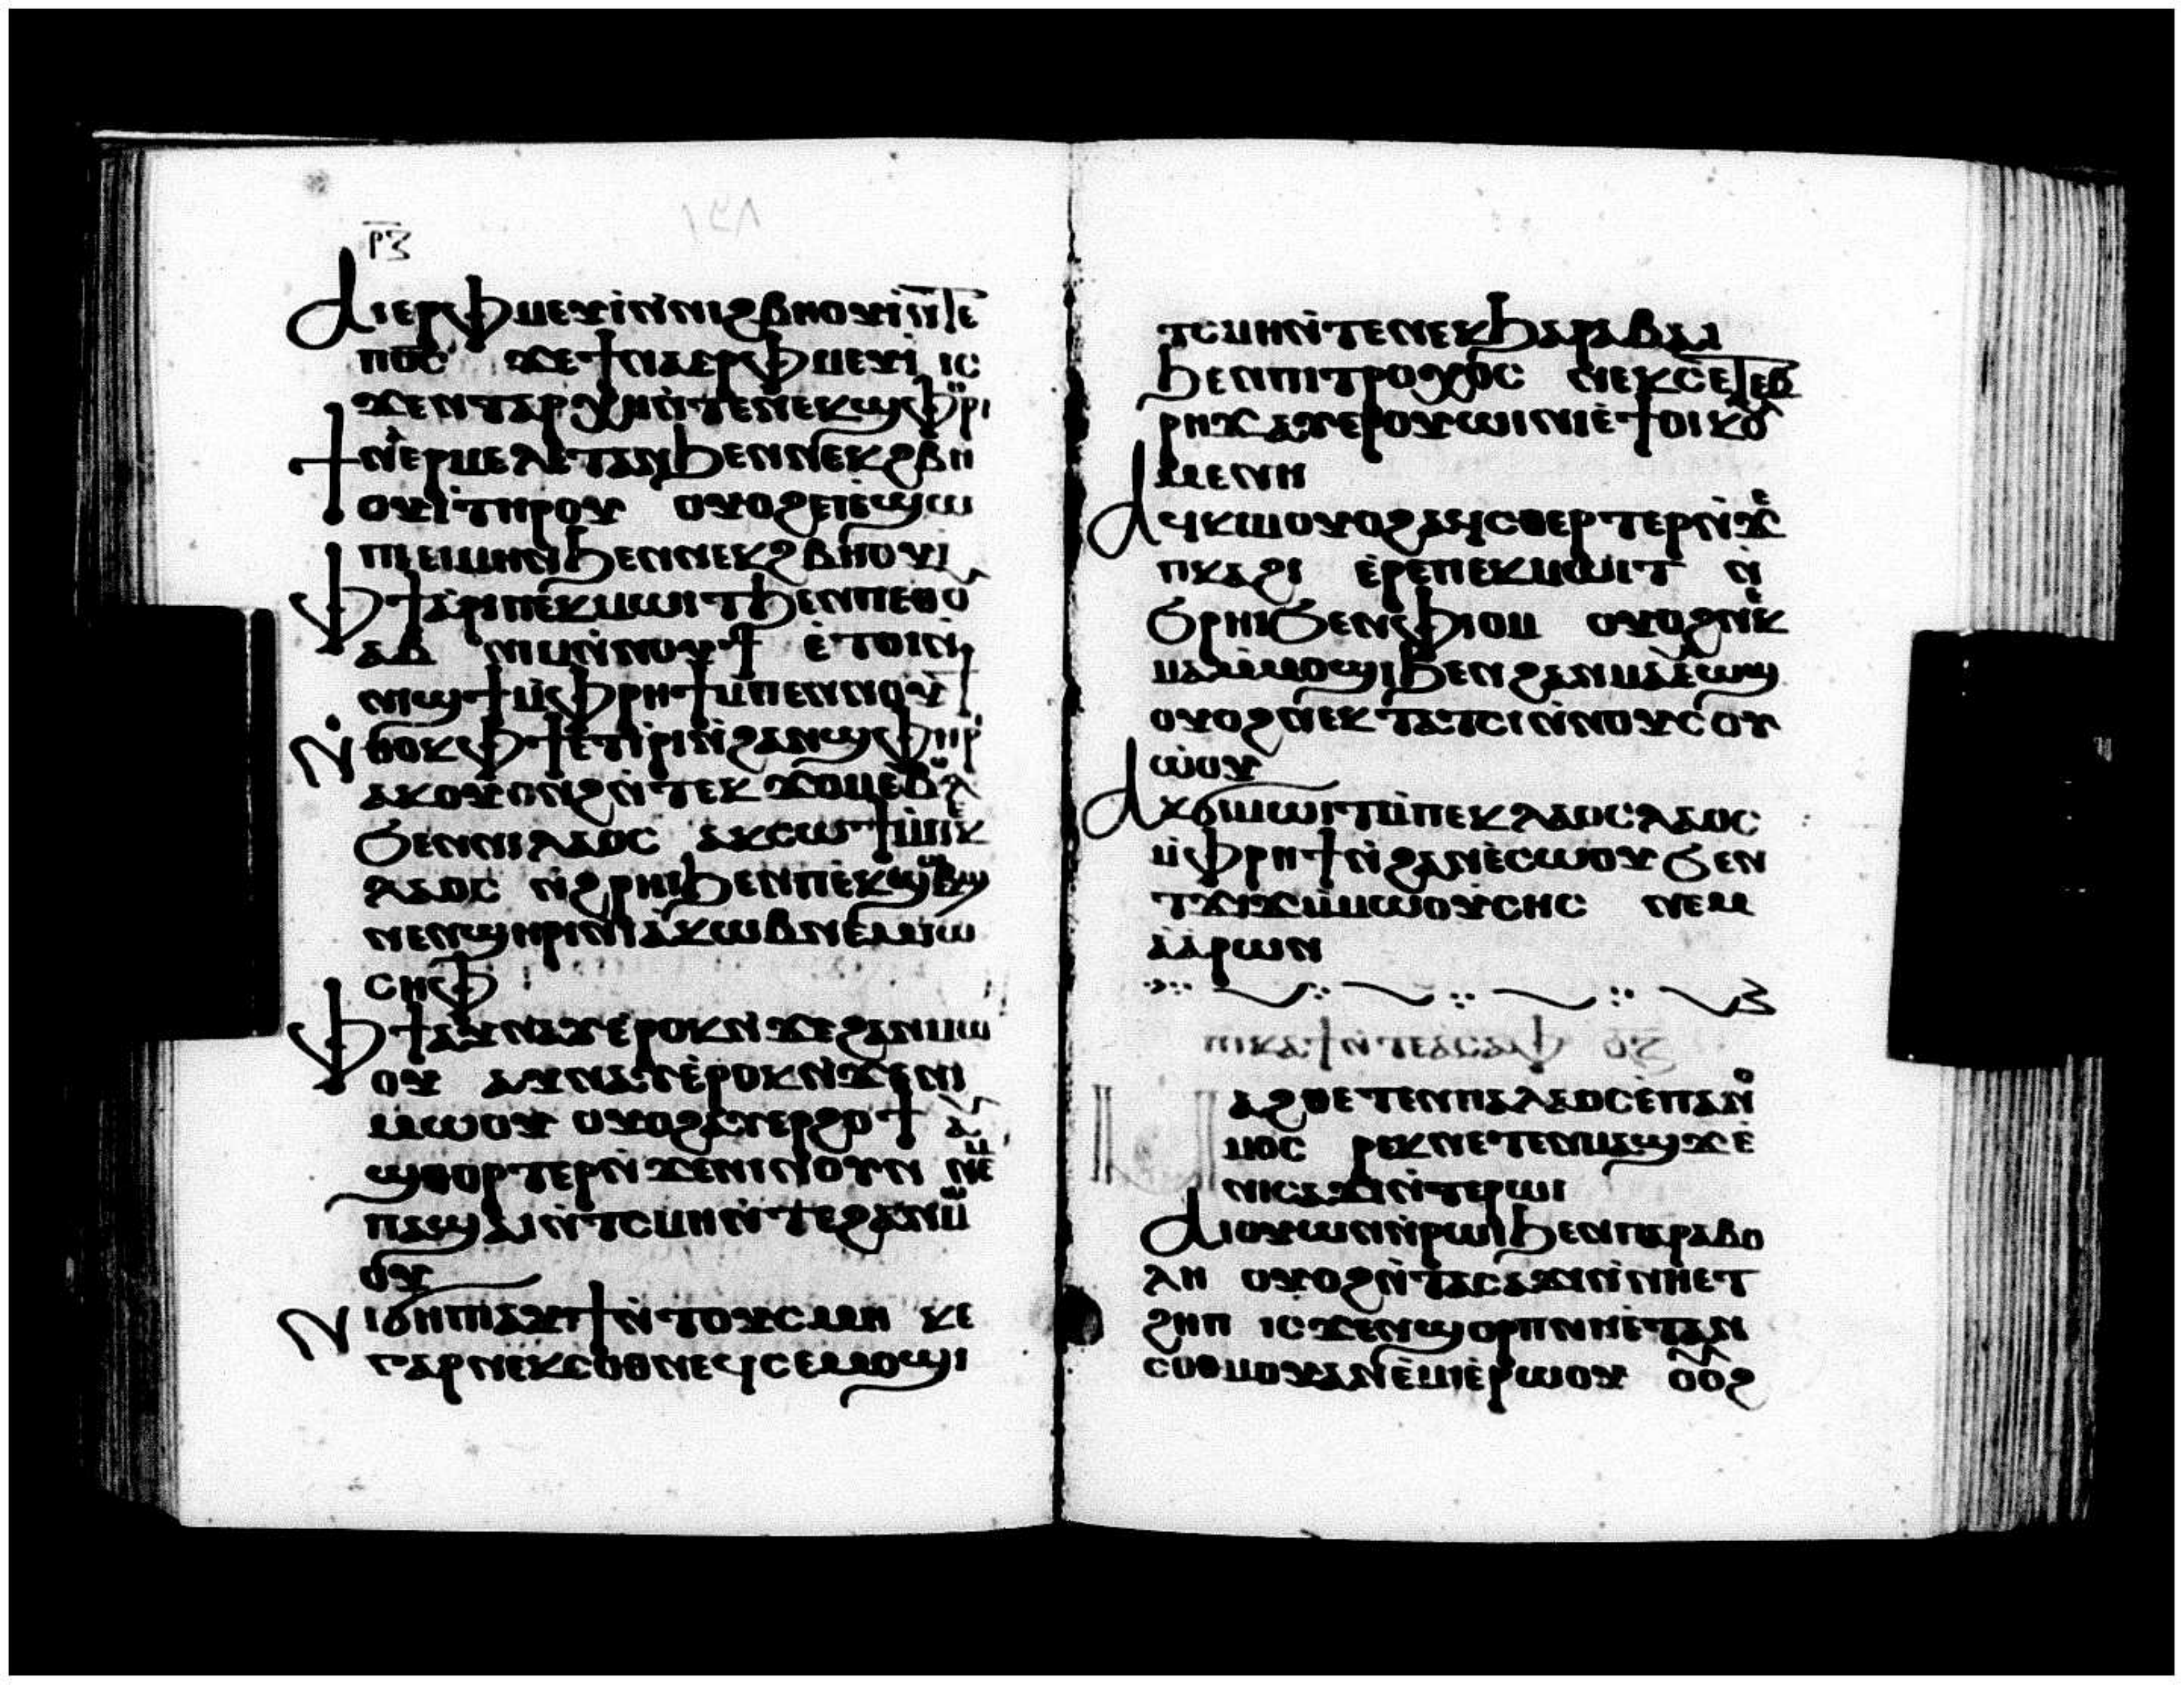 ⲣ̅ⲍ̅
Ⲁⲓⲉⲣⲫⲙⲉⲩⲓ̀ⲛ̀ⲛⲓϩⲃⲏⲟⲩⲓ̀ⲛ̀ⲧⲉ
ⲡⲟ̅ⲥ̅ ϫⲉϯⲛⲁⲉⲣⲫⲙⲉⲩⲓ̀ ⲓⲥ
ϫⲉⲛⲧⲁⲣⲭⲏⲛ̀ⲧⲉⲛⲉⲕϣⲫⲏⲣⲓ
ϯⲛⲉⲣⲙⲉⲗⲉⲧⲁⲛϧⲉⲛⲛⲉⲕϩⲃⲏ
ⲟⲩⲓ̀ⲧⲏⲣⲟⲩ ⲟⲩⲟϩⲉⲓⲉ̀ϣⲱ
ⲡⲓⲉⲓⲙⲏⲛϧⲉⲛⲛⲉⲕϩⲃⲏⲟⲩⲓ
Ⲫϯⲁⲣⲓⲡⲉⲕⲙⲱⲓⲧϧⲉⲛⲡⲉⲑⲟⲩ
ⲁⲃ ⲛⲓⲙⲛ̀ⲛⲟⲩϯ ⲉ̀ⲧⲟⲓⲛ̀
ⲛⲓϣϯⲙ̀ⲫⲣⲏϯⲙ̀ⲡⲉⲛⲛⲟⲩϯ
Ⲛⲑⲟⲕⲫϯⲉⲧⲓⲣⲓⲛ̀ϩⲁⲛϣⲫⲏⲣⲓ
ⲁⲕⲟⲩⲟⲛϩⲛ̀ⲧⲉⲕϫⲟⲙⲉ̀ⲃⲟⲗ
ϧⲉⲛⲛⲓⲗⲁⲟⲥ ⲁⲕⲥⲱϯⲙ̀ⲡⲉⲕ
ⲗⲁⲟⲥ ⲛ̀ϩⲣⲏⲓϧⲉⲛⲡⲉⲕϣⲱⲃϣ
ⲛⲉⲛϣⲏⲣⲓⲛ̀ⲓⲁⲕⲱⲃⲛⲉⲙⲓⲱ
ⲥⲏⲫ
Ⲫϯⲁⲩⲛⲁⲩⲉ̀ⲣⲟⲕⲛ̀ϫⲉϩⲁⲛⲙⲱ
ⲟⲩ ⲁⲩⲛⲁⲩⲉ̀ⲣⲟⲕⲛ̀ϫⲉⲛⲓ
ⲙⲱⲟⲩ ⲟⲩⲟϩⲁⲩⲉⲣϩⲟϯ ⲁⲩ
ϣⲑⲟⲣⲧⲉⲣⲛ̀ϫⲉⲛⲓⲛⲟⲩⲛ ⲛⲉⲙ
ⲡⲁϣⲁⲓⲛ̀ⲧⲥⲙⲏⲛ̀ⲧⲉϩⲁⲛⲙⲱ
ⲟⲩ
Ⲛⲓϭⲏⲡⲓⲁⲩϯⲛ̀ⲧⲟⲩⲥⲙⲏ ⲕⲉ
ⲅⲁⲣⲛⲉⲕⲥⲟⲑⲛⲉϥⲥⲉⲙⲟϣⲓ
ⲧⲥⲙⲏⲛ̀ⲧⲉⲛⲉⲕϧⲁⲣⲁⲃⲁⲓ
ϧⲉⲛⲡⲓⲧⲣⲟⲭⲟⲥ ⲛⲉⲕⲥⲉⲧⲉⲃ
ⲣⲏϫⲁⲩⲉⲣⲟⲩⲱⲓⲛⲓⲉ̀ϯⲟⲓⲕⲟⲩ
ⲙⲉⲛⲏ
Ⲁϥⲕⲓⲙⲟⲩⲟϩⲁϥⲥⲑⲉⲣⲧⲉⲣⲛ̀ϫⲉ
ⲡⲕⲁϩⲓ ⲉ̀ⲣⲉⲡⲉⲕⲙⲱⲓⲧ ⲛ̀
ϧⲣⲏⲓϧⲉⲛⲫⲓⲟⲙ ⲟⲩⲟϩⲛⲉⲕ
ⲙⲁⲙⲙⲟϣⲓϧⲉⲛϩⲁⲛⲙⲁⲉⲱϣ
ⲟⲩⲟϩⲛⲉⲕⲧⲁⲧⲥⲓⲛ̀ⲛⲟⲩⲥⲟⲩ
ⲱⲟⲩ
Ⲁⲕϭⲓⲙⲱⲓⲧⲙ̀ⲡⲉⲕⲗⲁⲟⲥⲗⲁⲟⲥ
ⲙ̀ⲫⲣⲏϯⲛ̀ϩⲁⲛⲉ̀ⲥⲱⲟⲩϧⲉⲛ
ⲧϫⲓϫⲙ̀ⲙⲱⲟⲩⲥⲏⲥ ⲛⲉⲙ
ⲁ̀ⲁⲣⲱⲛ
ⲡⲓⲕⲁϯⲛ̀ⲧⲉⲁⲥⲁⲫ ⲟ̅ⲍ̅
ⲙⲁϩⲑⲉⲧⲉⲛⲡⲁⲗⲁⲟⲥⲉ̀ⲡⲁⲛⲟ
ⲙⲟⲥ ⲣⲉⲕⲛⲉⲧⲉⲛⲙⲁϣϫⲉ̀
ⲛⲓⲥⲁϫⲓⲛ̀ⲧⲉⲣⲱⲓ
Ⲁⲓⲟⲩⲱⲛⲛ̀ⲣⲱⲓϧⲉⲛⲡⲁⲣⲁⲃⲟ
ⲗⲏ ⲟⲩⲟϩⲛ̀ⲧⲁⲥⲁϫⲓⲛ̀ⲛⲏⲉⲧ
ϩⲏⲡ ⲓⲥϫⲉⲛϣⲟⲣⲡⲛⲏⲉ̀ⲧⲁⲛ
ⲥⲟⲑⲙⲟⲩⲁⲛⲉ̀ⲙⲓⲉ̀ⲣⲱⲟⲩ ⲟⲟϩ